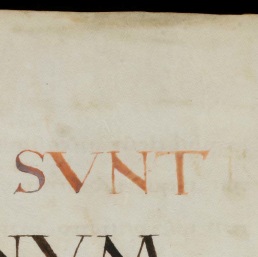 SVNT
NVM